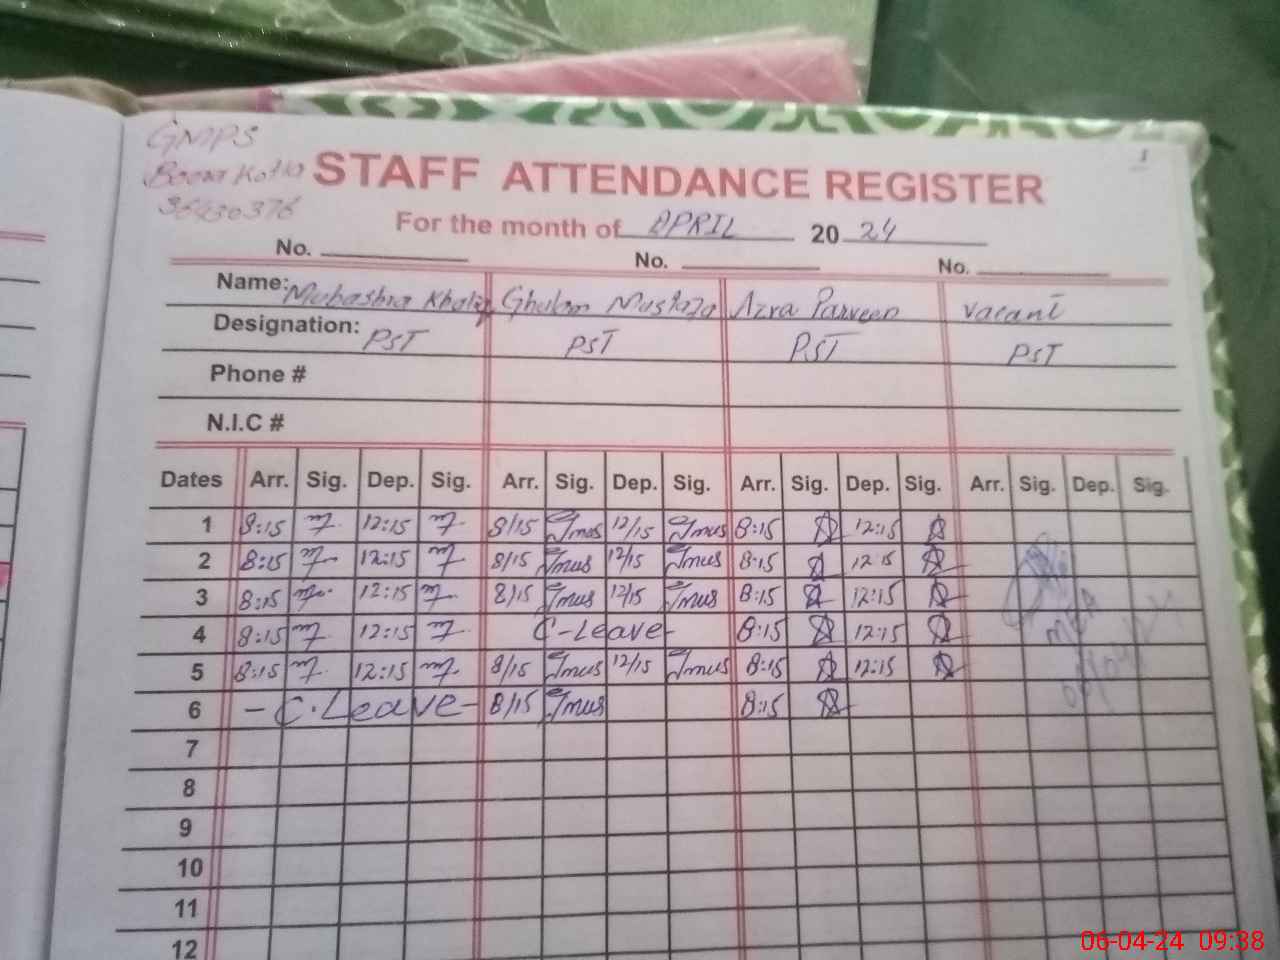 GMPS
Boora Kotla
36430376
1
STAFF ATTENDANCE REGISTER
For the month of APRIL 2024
No. No. No.
Name: Mubashra Khaliq Ghulam Mustafa Azra Parveen Vacant
Designation: PST PST PST PST
Phone #
N.I.C #
Dates Arr. Sig. Dep. Sig. Arr. Sig. Dep. Sig. Arr. Sig. Dep. Sig. Arr. Sig. Dep. Sig.
1 8:15 12:15 8/15 Jmus 12/15 Jmus 8:15 12:15
2 8:15 12:15 8/15 Jmus 12/15 Jmus 8:15 12:15
3 8:15 12:15 8/15 Jmus 12/15 Jmus 8:15 12:15
4 8:15 12:15 C-Leave- 8:15 12:15
5 8:15 12:15 8/15 Jmus 12/15 Jmus 8:15 12:15
6 -C.Leave- 8/15 Jmus 8:15
MEA
7
8
9
10
11
12
06-04-24 09:38